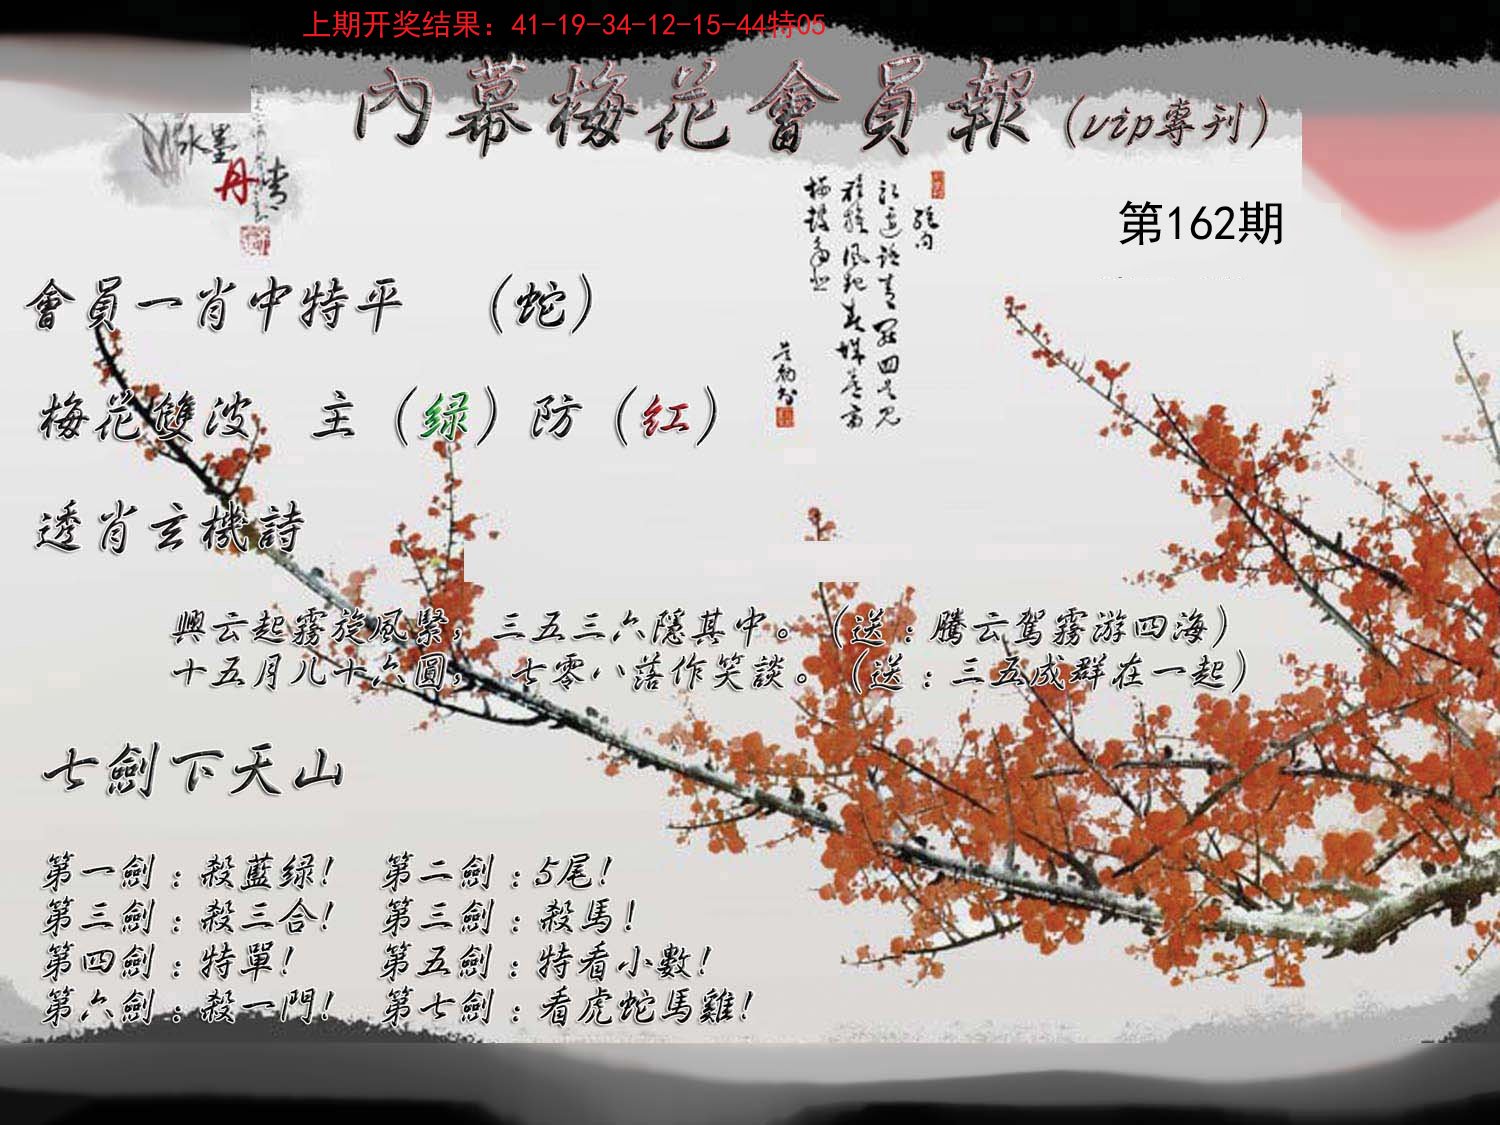 上期开奖结果：41-19-34-12-15-44特05
內幕梅花會員報（vip專刊）
水墨
丹青
第162期
會員一肖中特平 （蛇）
梅花雙波 主（绿）防（红）
透肖玄機詩
興云起霧旋風緊，三五三六隱其中。（送：騰云駕霧游四海）
十五月儿十六圓， 七零八落作笑談。（送：三五成群在一起）
七劍下天山
第一劍：殺藍绿！ 第二劍：5尾！
第三劍：殺三合！ 第三劍：殺馬！
第四劍：特單！ 第五劍：特看小數！
第六劍：殺一門！ 第七劍：看虎蛇馬雞！